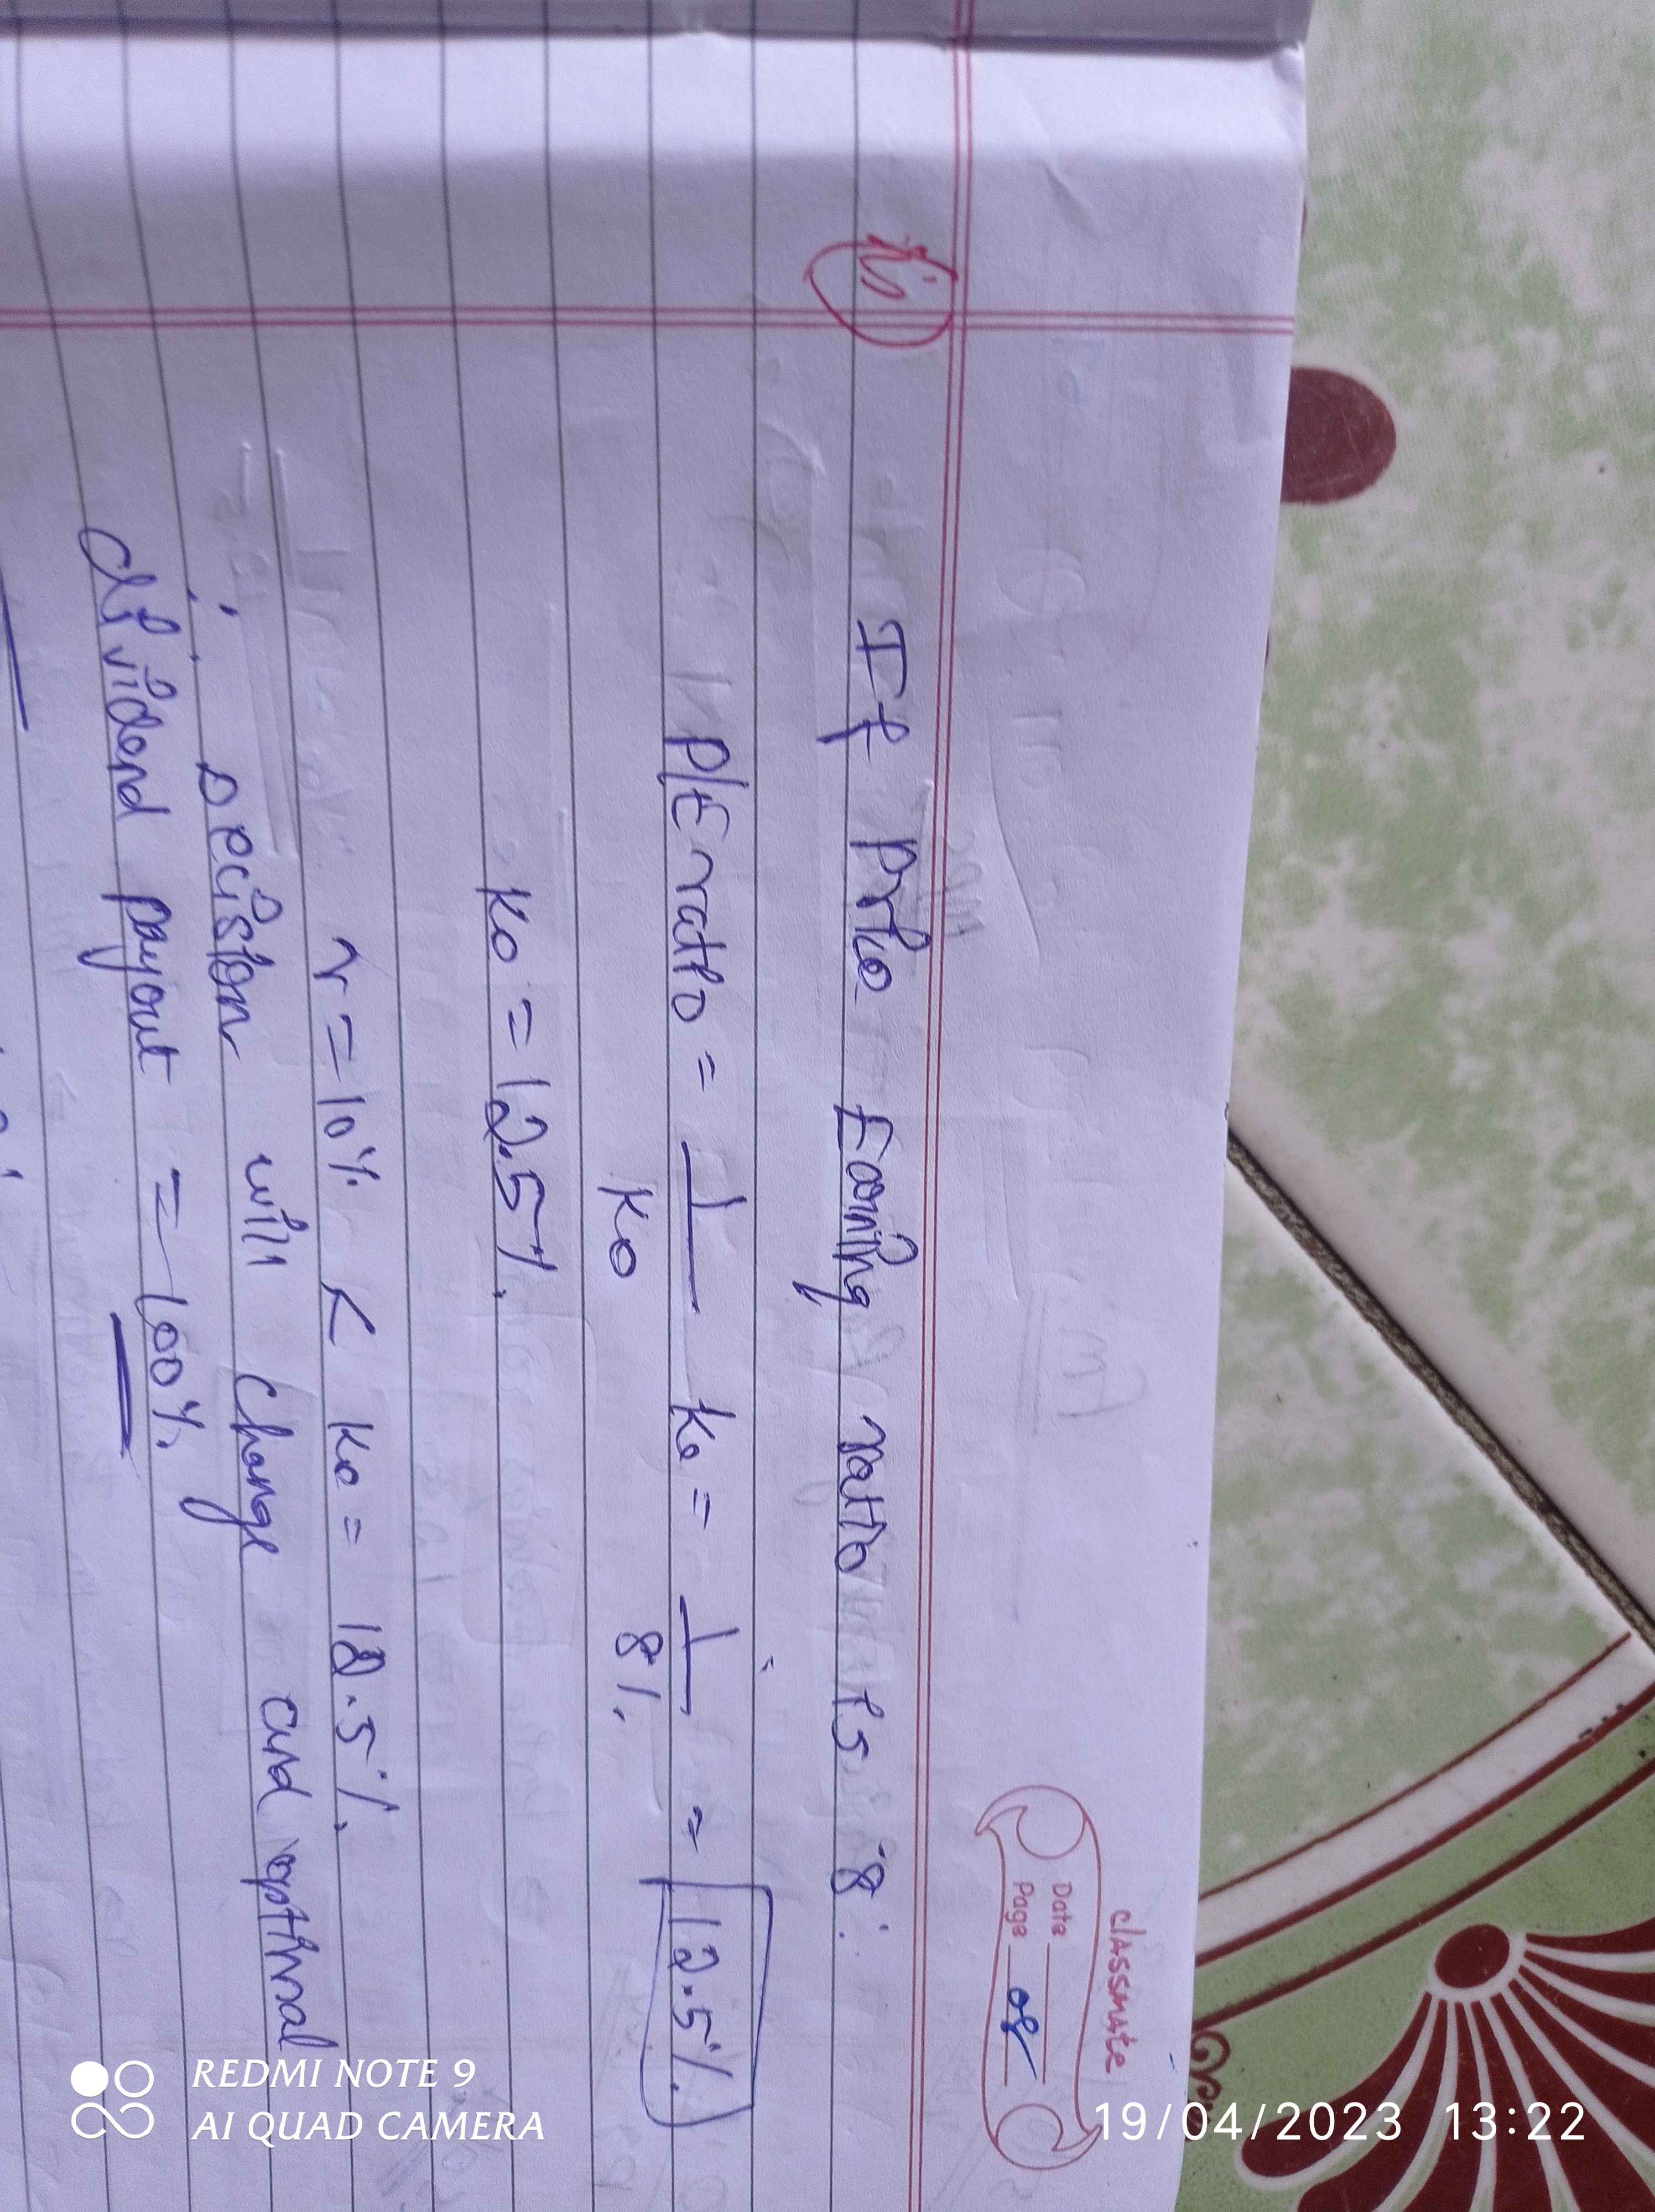 classmate
Date
Page 08
iii
If Price Earning ratio is 8 :
P/E ratio = 1/Ke Ke = 1/8% = 12.5%
Ke = 12.5%
r = 10% < Ke = 12.5%
∴ Decision will change and optimal
dividend payout = 100%
REDMI NOTE 9
AI QUAD CAMERA
19/04/2023 13:22